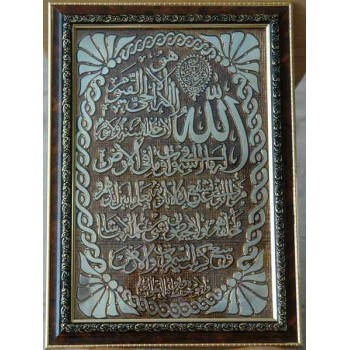 الله لا اله الا هو الحي القيوم
لا تأخذه سنة ولا نوم
له ما في السموات وما في الارض
من ذا الذي يشفع عنده الا باذنه يعلم ما بين ايديهم
وما خلفهم ولا يحيطون بشيء من علمه الا بما شاء
وسع كرسيه السموات والارض
ولا يؤده حفظهما وهو العلي العظيم